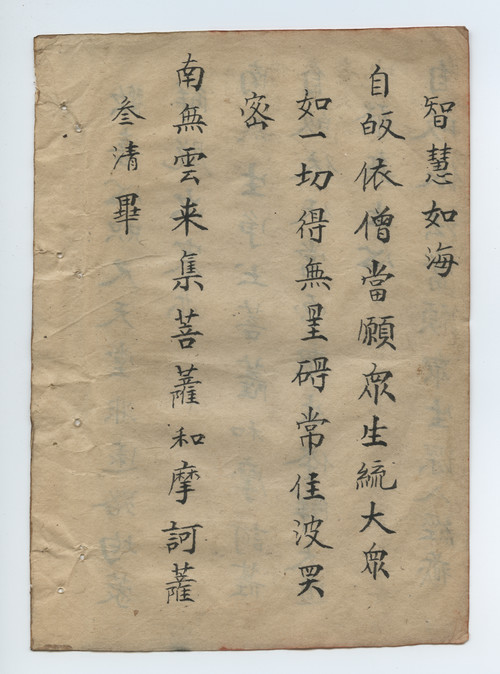 智慧如海
自皈依僧當願眾生統大眾
如一切得無罣碍常住波罗
密
南無雲来集菩薩和摩訶薩
叁清畢